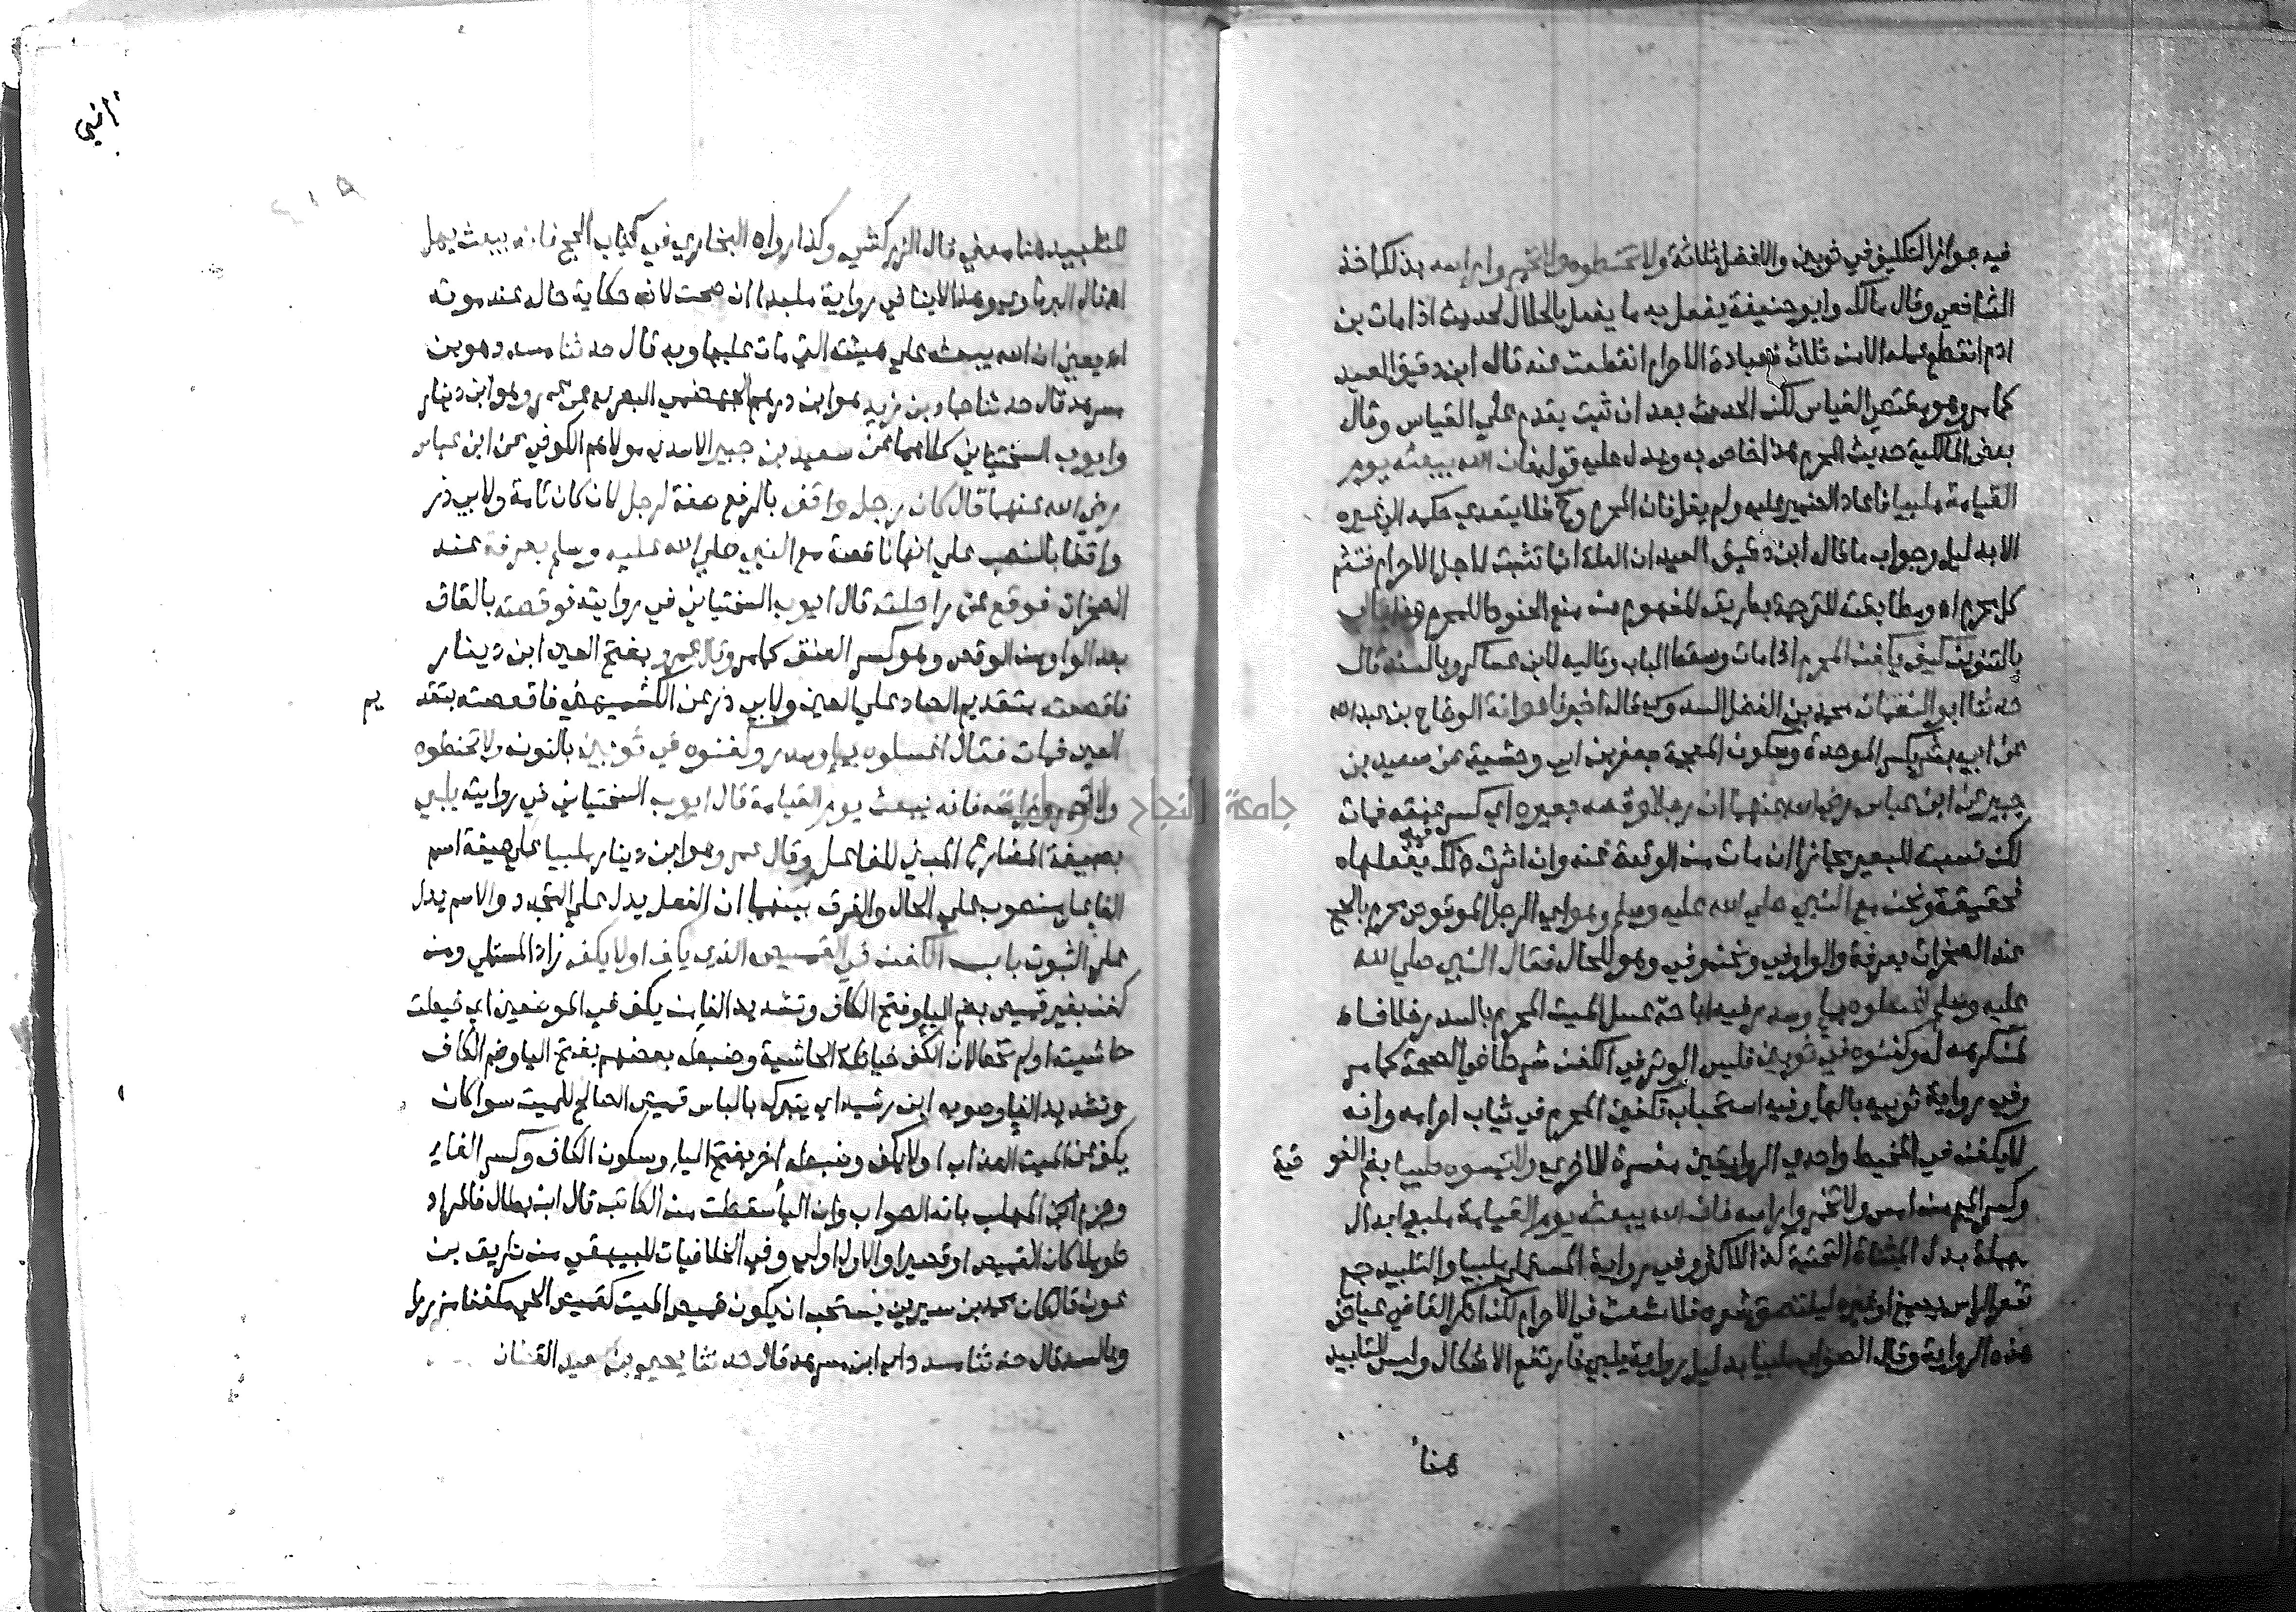 فيه جواز التكفين في ثوبين والافضل ثلاثة ولا تحنطوه ولا تخمروا راسه بذلك اخذ
الشافعي وقال مالك وابو حنيفة يفعل به ما يفعل بالحلال لحديث اذا مات بن
ادم انقطع عمله الا من ثلاث فعبادة الاحرام انقطعت عنه قال ابن دقيق العيد
كما مر وهو مقتضى القياس لكن الحديث بعد ان ثبت يقدم علي القياس وقال
بعض المالكية حديث المحرم هذا خاص به ويدل عليه قوله فان الله يبعثه يوم
القيامة ملبيا فاعاد الضمير عليه ولم يقل فان المحرم وح فلا يتعدي حكمه الي غيره
الا بدليل وجواب ما قاله ابن دقيق العيد ان العلة انما تثبت لاجل الاحرام فتعم
كل محرم اه ومطابقته للترجمة بطريق المفهوم من منع الحنوط للمحرم هذا باب
بالتنوين كيف يكفن المحرم اذا مات وسقط الباب وتاليه لابن عساكر وبالسند قال
حدثنا ابو النعمان محمد بن الفضل السدوسي قال اخبرنا ابو عوانة الوضاح بن عبد الله
عن ابي بشر بكسر الموحدة وسكون المعجمة جعفر بن ابي وحشية عن سعيد بن
جبير عن ابن عباس رضي الله عنهما ان رجلا وقصه بعيره اي كسر عنقه فمات
لكن نسبته للبعير مجازا ان مات من الوقعة عنه وان اثرت ذلك فيه بفعلها
فحقيقة ونحن مع النبي صلي الله عليه وسلم وهو اي الرجل الموقوص محرم بالحج
عند الصخرات بعرفة والواو في ونحن وفي وهو للحال فقال النبي صلي الله
عليه وسلم اغسلوه بماء وسدر فيه اباحة غسل الميت المحرم بالسدر خلافا لمن
كرهه له وكفنوه في ثوبين فليس الوتر في الكفن شرطا في الصحة كما مر
وفي رواية ثوبيه بالها وفيه استحباب تكفين المحرم في ثياب احرامه وانه
لا يكفن في المخيط واحدي الروايتين مفسرة للاخري ولا تمسوه طيبا بضم الفو قية
وكسر الميم من امس ولا تخمروا راسه فان الله يبعثه يوم القيامة ملبدا بدال
مهملة بدل المثناة التحتية كذا للاكثر وفي رواية المستملي ملبيا والتلبيد جمع
شعر الراس بصمغ او غيره ليلتصق شعره فلا يشعث في الاحرام لكن انكر القاضي عياض
هذه الرواية وقال الصواب ملبيا بدليل رواية يلبي فارتفع الاشكال وليس للتلبيد
هنا
للتلبيد هنا معني قال الزركشي وكذا رواه البخاري في كتاب الحج فانه يبعث يهل
اه قال البرماوي وهذا لا ينافي رواية ملبدا ان صحت لانه حكاية حاله عند موته
اه يعني ان الله يبعثه علي هيئته التي مات عليها وبه قال حدثنا مسدد هو بن
مسرهد قال حدثنا حماد بن زيد هو ابن درهم الجهضمي البصري عن عمرو هو ابن دينار
وايوب السختياني كلاهما عن سعيد بن جبير الاسدي مولاهم الكوفي عن ابن عباس
رضي الله عنهما قال كان رجل واقف بالرفع صفة لرجل لان كان تامة ولابي ذر
واقفا بالنصب علي انها ناقصة مع النبي صلي الله عليه وسلم بعرفة عند
الصخرات فوقع عن راحلته قال ايوب السختياني في روايته فوقصته بالقاف
بعد الواو من الوقص وهو كسر العنق كما مر وقال عمرو بفتح العين ابن دينار
فاقصعته بتقديم الصاد علي العين ولابي ذر عن الكشميهني فاقعصته بتقد يم
العين فمات فقال اغسلوه بماء وسدر وكفنوه في ثوبين بالنون ولا تحنطوه
ولا تخمروا راسه فانه يبعث يوم القيامة قال ايوب السختياني في روايته يلبي
بصيغة المضارع المبني للفاعل وقال عمرو هو ابن دينار ملبيا علي صيغة اسم
الفاعل منصوب علي الحال والفرق بينهما ان الفعل يدل علي التجدد والاسم يدل
علي الثبوت باب الكفن في القميص الذي يكف او لا يكف زاد المستملي ومن
كفن بغير قميص بضم الياء وفتح الكاف وتشديد الفاء من يكف في الموضعين اي خيطت
حاشيته اولم تخط لان الكف خياطة الحاشية وضبطه بعضهم بفتح اليا وضم الكاف
وتشديد الفاء وصوبه ابن رشيد اي يتبرك بالباس قميص الصالح للميت سوا كان
يكف عن الميت العذاب او لا يكف وضبطه اخر بفتح الياء وسكون الكاف وكسر الفاء
وجزم المهلب بانه الصواب وان اليا سقطت من الكاتب قال ابن بطال فالمراد
طويلا كان القميص او قصيرا والاول اولي وفي الخلافيات للبيهقي من طريق بن
عون قال كان محمد بن سيرين يستحب ان يكون قميص الميت كقميص الحي مكففا مزررا
وبالسند قال حدثنا مسدد اي ابن مسرهد قال حدثنا يحيي بن سعيد القطان
جامعة النجاح الوطنية